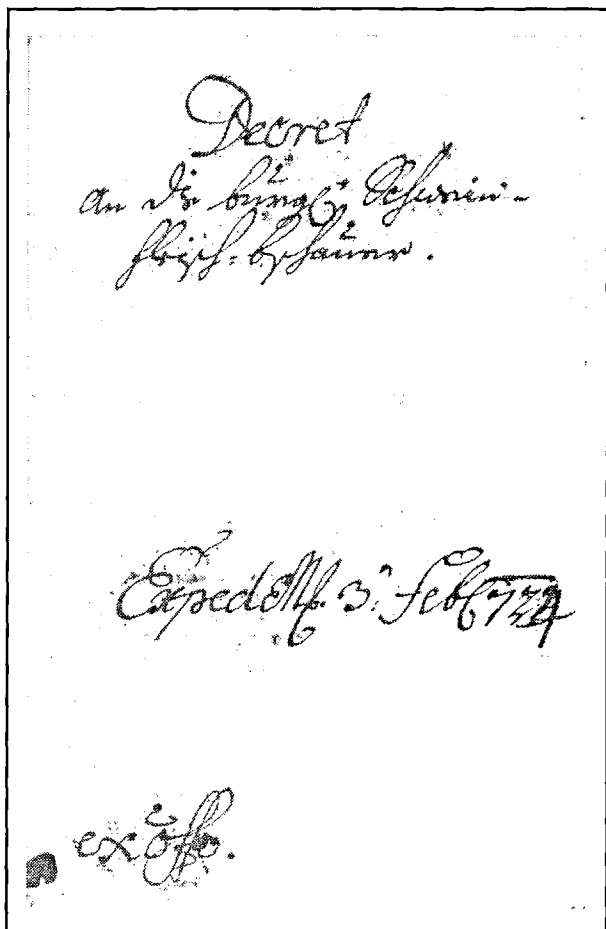 Decret
an die burgl: Schwein-
fleisch-bschauer.
Exped: 3. Feb: 724
ex off̄o.